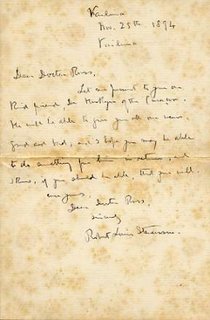 Vailima
Nov. 25th 1894
Vailima
Dear Doctor Ross,
Let me present to you my
friend Mr. of the
He will be able to give you all our news,
Good and bad, and I hope you may be able
to do anything for him in return, and
I know, if you should be able, that you will.
Dear Doctor Ross,
Sincerely
Robert Louis Stevenson